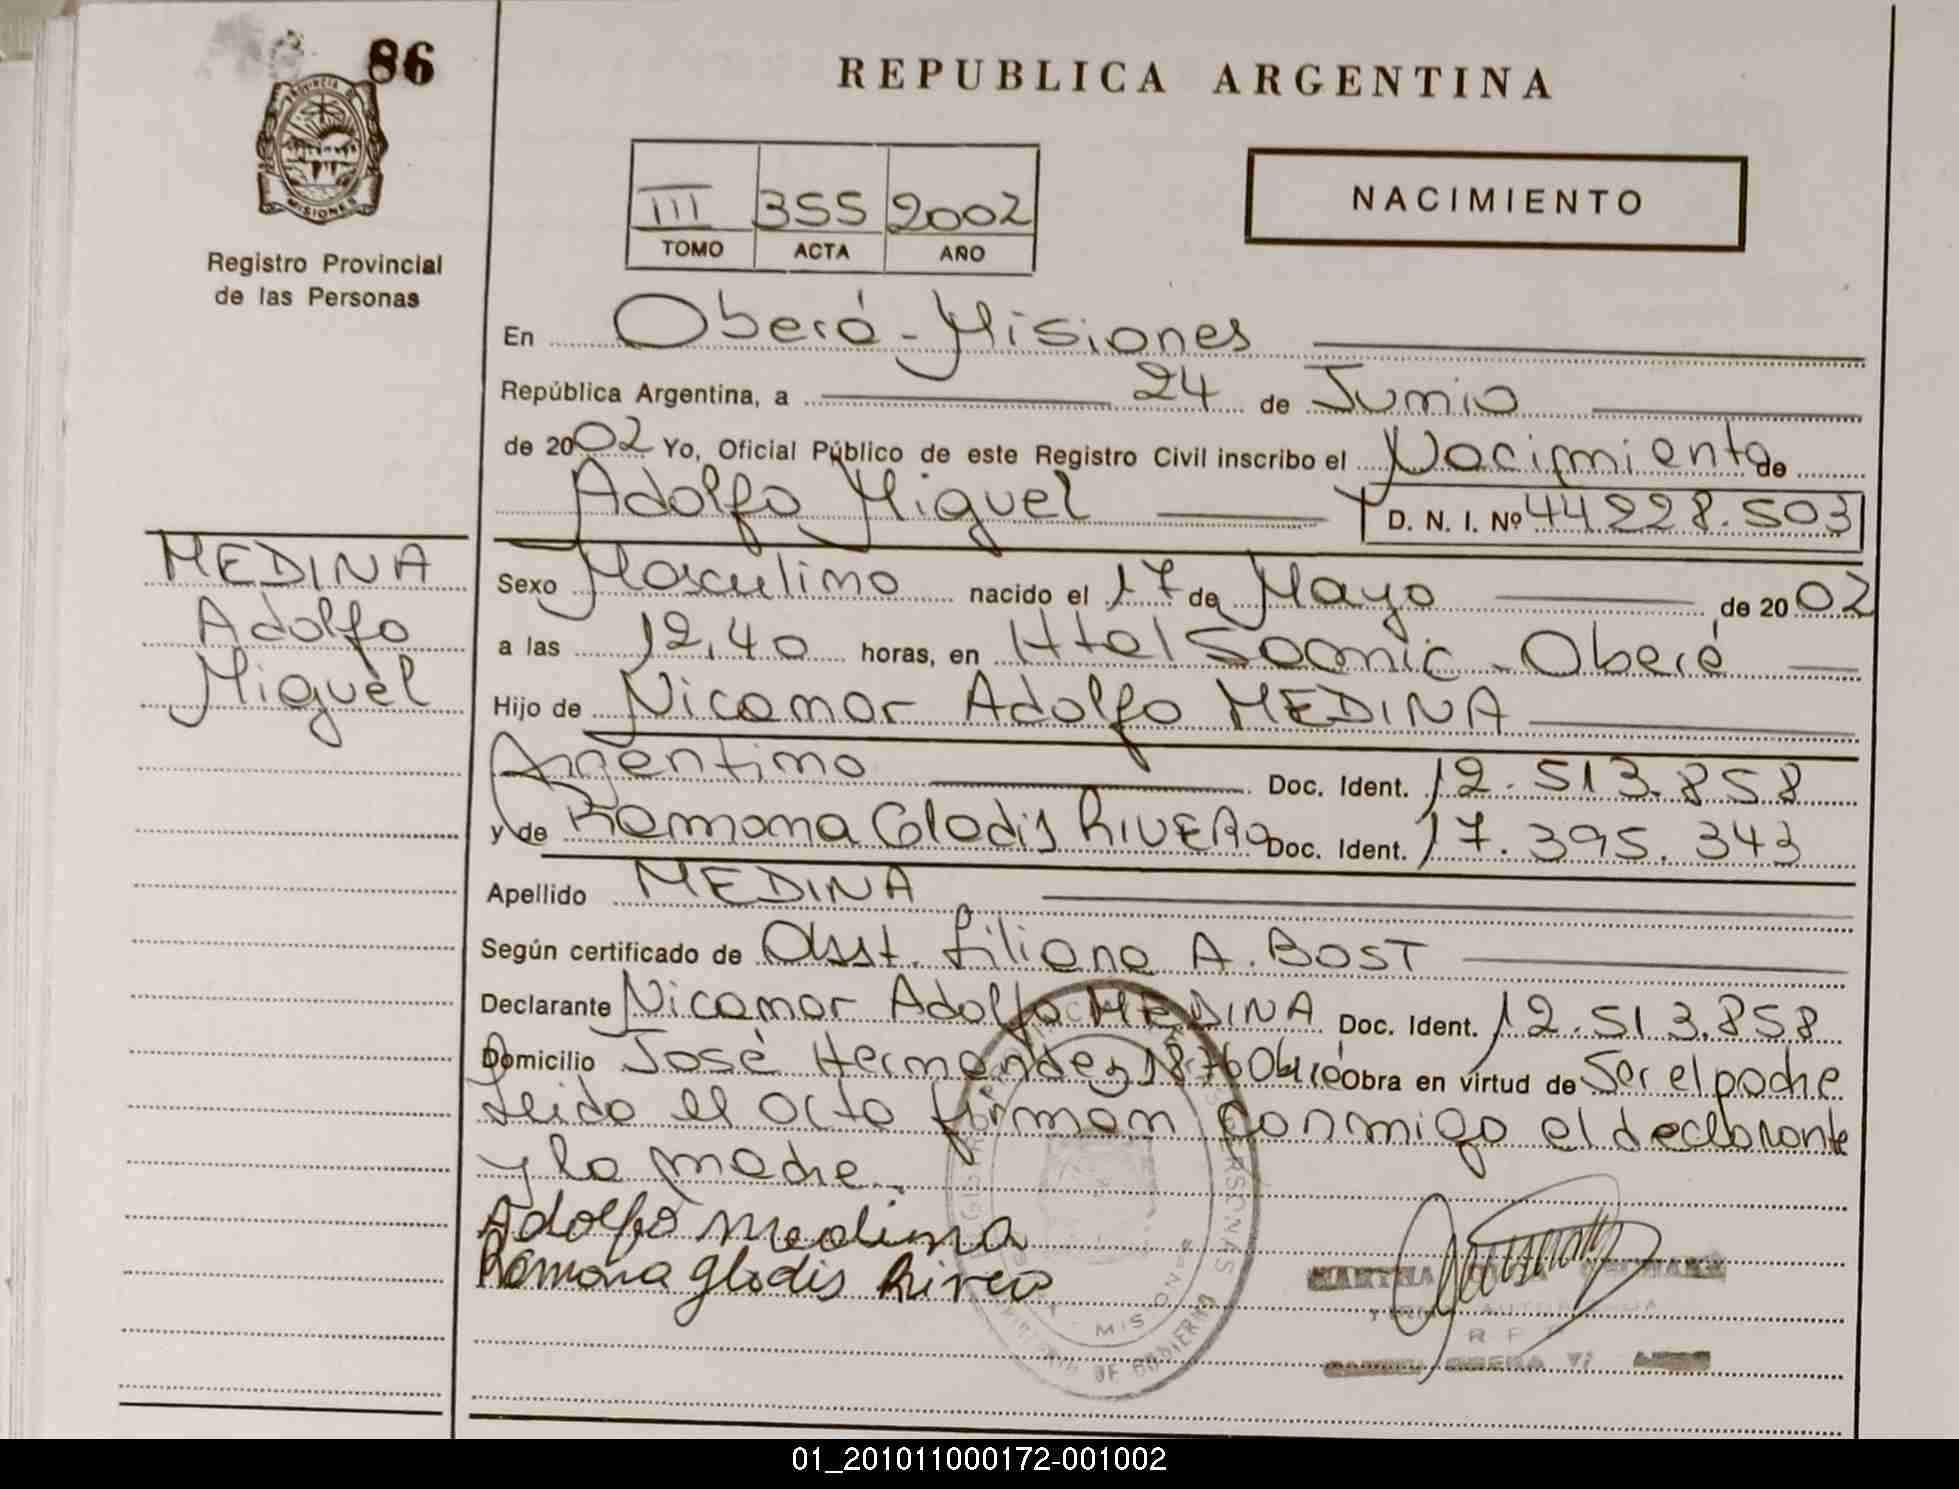 86
PROVINCIA DE
MISIONES
Registro Provincial
de las Personas
REPUBLICA ARGENTINA
III 355 2002
TOMO ACTA AÑO
NACIMIENTO
En Oberá - Misiones
República Argentina, a 24 de Junio
de 2002 Yo, Oficial Público de este Registro Civil inscribo el Nacimiento de
Adolfo Miguel D. N. I. Nº 44228.503
MEDINA
Adolfo
Miguel
Sexo Masculino nacido el 17 de Mayo de 2002
a las 12,40 horas, en Oberá
Hijo de Nicamor Adolfo MEDINA
Argentino Doc. Ident. 12.513.858
y de Ramona Gladis RIVERO Doc. Ident. 17.395.343
Apellido MEDINA
Según certificado de Obst. Liliana A. BOST
Declarante Nicamor Adolfo MEDINA Doc. Ident. 12.513.858
Domicilio José Hernandez 1876 Oberá Obra en virtud de Ser el padre
Leido el acta firman conmigo el declarante
y la madre.
Adolfo Medina
Ramona Gladis Rivero
MISIONES
DE GOBIERNO
01_201011000172-001002